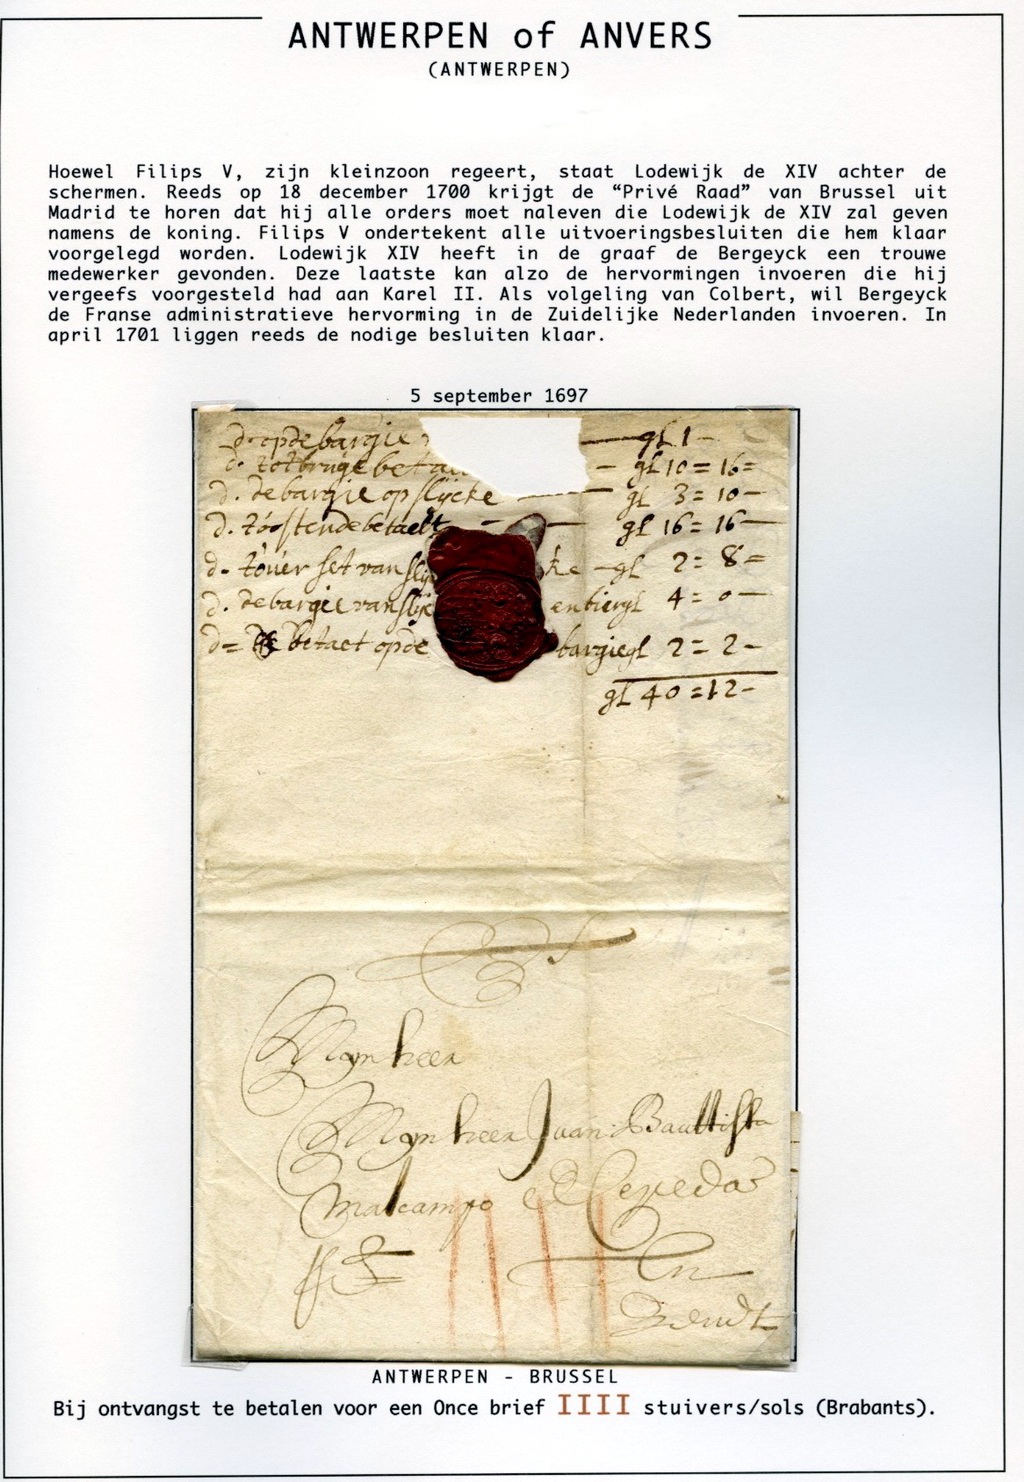 ANTWERPEN of ANVERS
(ANTWERPEN)
Hoewel Filips V, zijn kleinzoon regeert, staat Lodewijk de XIV achter de
schermen. Reeds op 18 december 1700 krijgt de “Privé Raad” van Brussel uit
Madrid te horen dat hij alle orders moet naleven die Lodewijk de XIV zal geven
namens de koning. Filips V ondertekent alle uitvoeringsbesluiten die hem klaar
voorgelegd worden. Lodewijk XIV heeft in de graaf de Bergeyck een trouwe
medewerker gevonden. Deze laatste kan alzo de hervormingen invoeren die hij
vergeefs voorgesteld had aan Karel II. Als volgeling van Colbert, wil Bergeyck
de Franse administratieve hervorming in de Zuidelijke Nederlanden invoeren. In
april 1701 liggen reeds de nodige besluiten klaar.
5 september 1697
d. op de bargie gl 1 -
d. tot brugge gl 10 = 16 =
d. de bargie op slijcke gl 3 = 10 -
d. t'oostende betaelt - - gl 16 = 16 -
d. van - gl 2 = 8 =
d. de bargie van gl 4 = 0 -
d = betaelt op de bargie gl 2 = 2 -
gl 40 = 12 -
Mynheer
Mynheer Juan Bauttista
Malcampo Cepeda
En
Gendt
ANTWERPEN - BRUSSEL
Bij ontvangst te betalen voor een Once brief IIII stuivers/sols (Brabants).